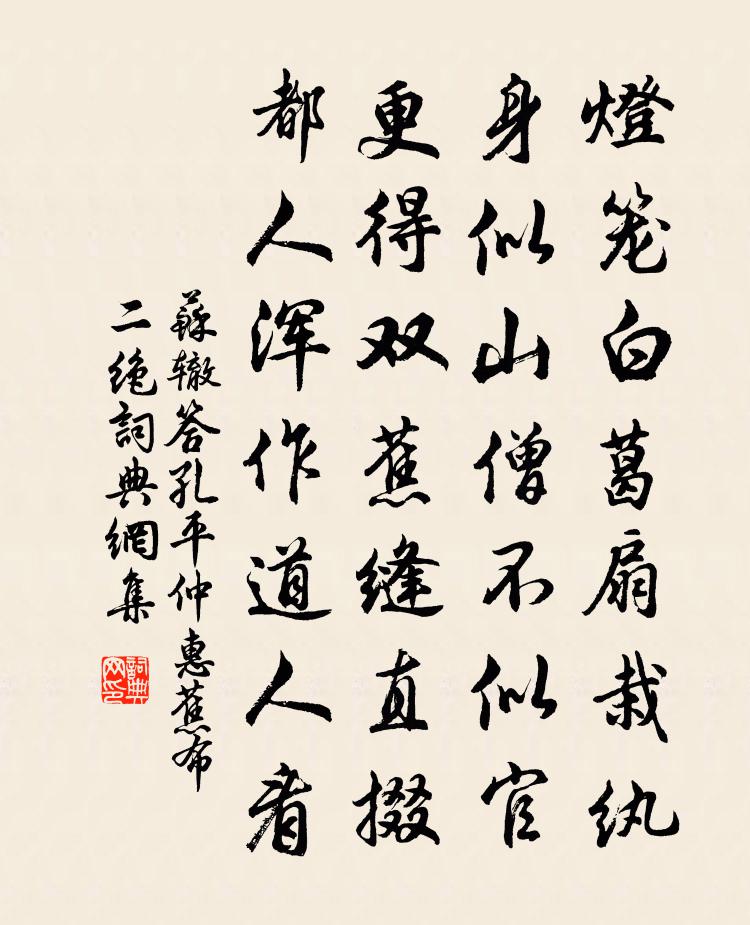 燈笼白葛扇裁纨
身似山僧不似官
更得双蕉缝直掇
都人浑作道人看
蘇辙答孔平仲惠蕉布
二绝詞典網集
詞典网印